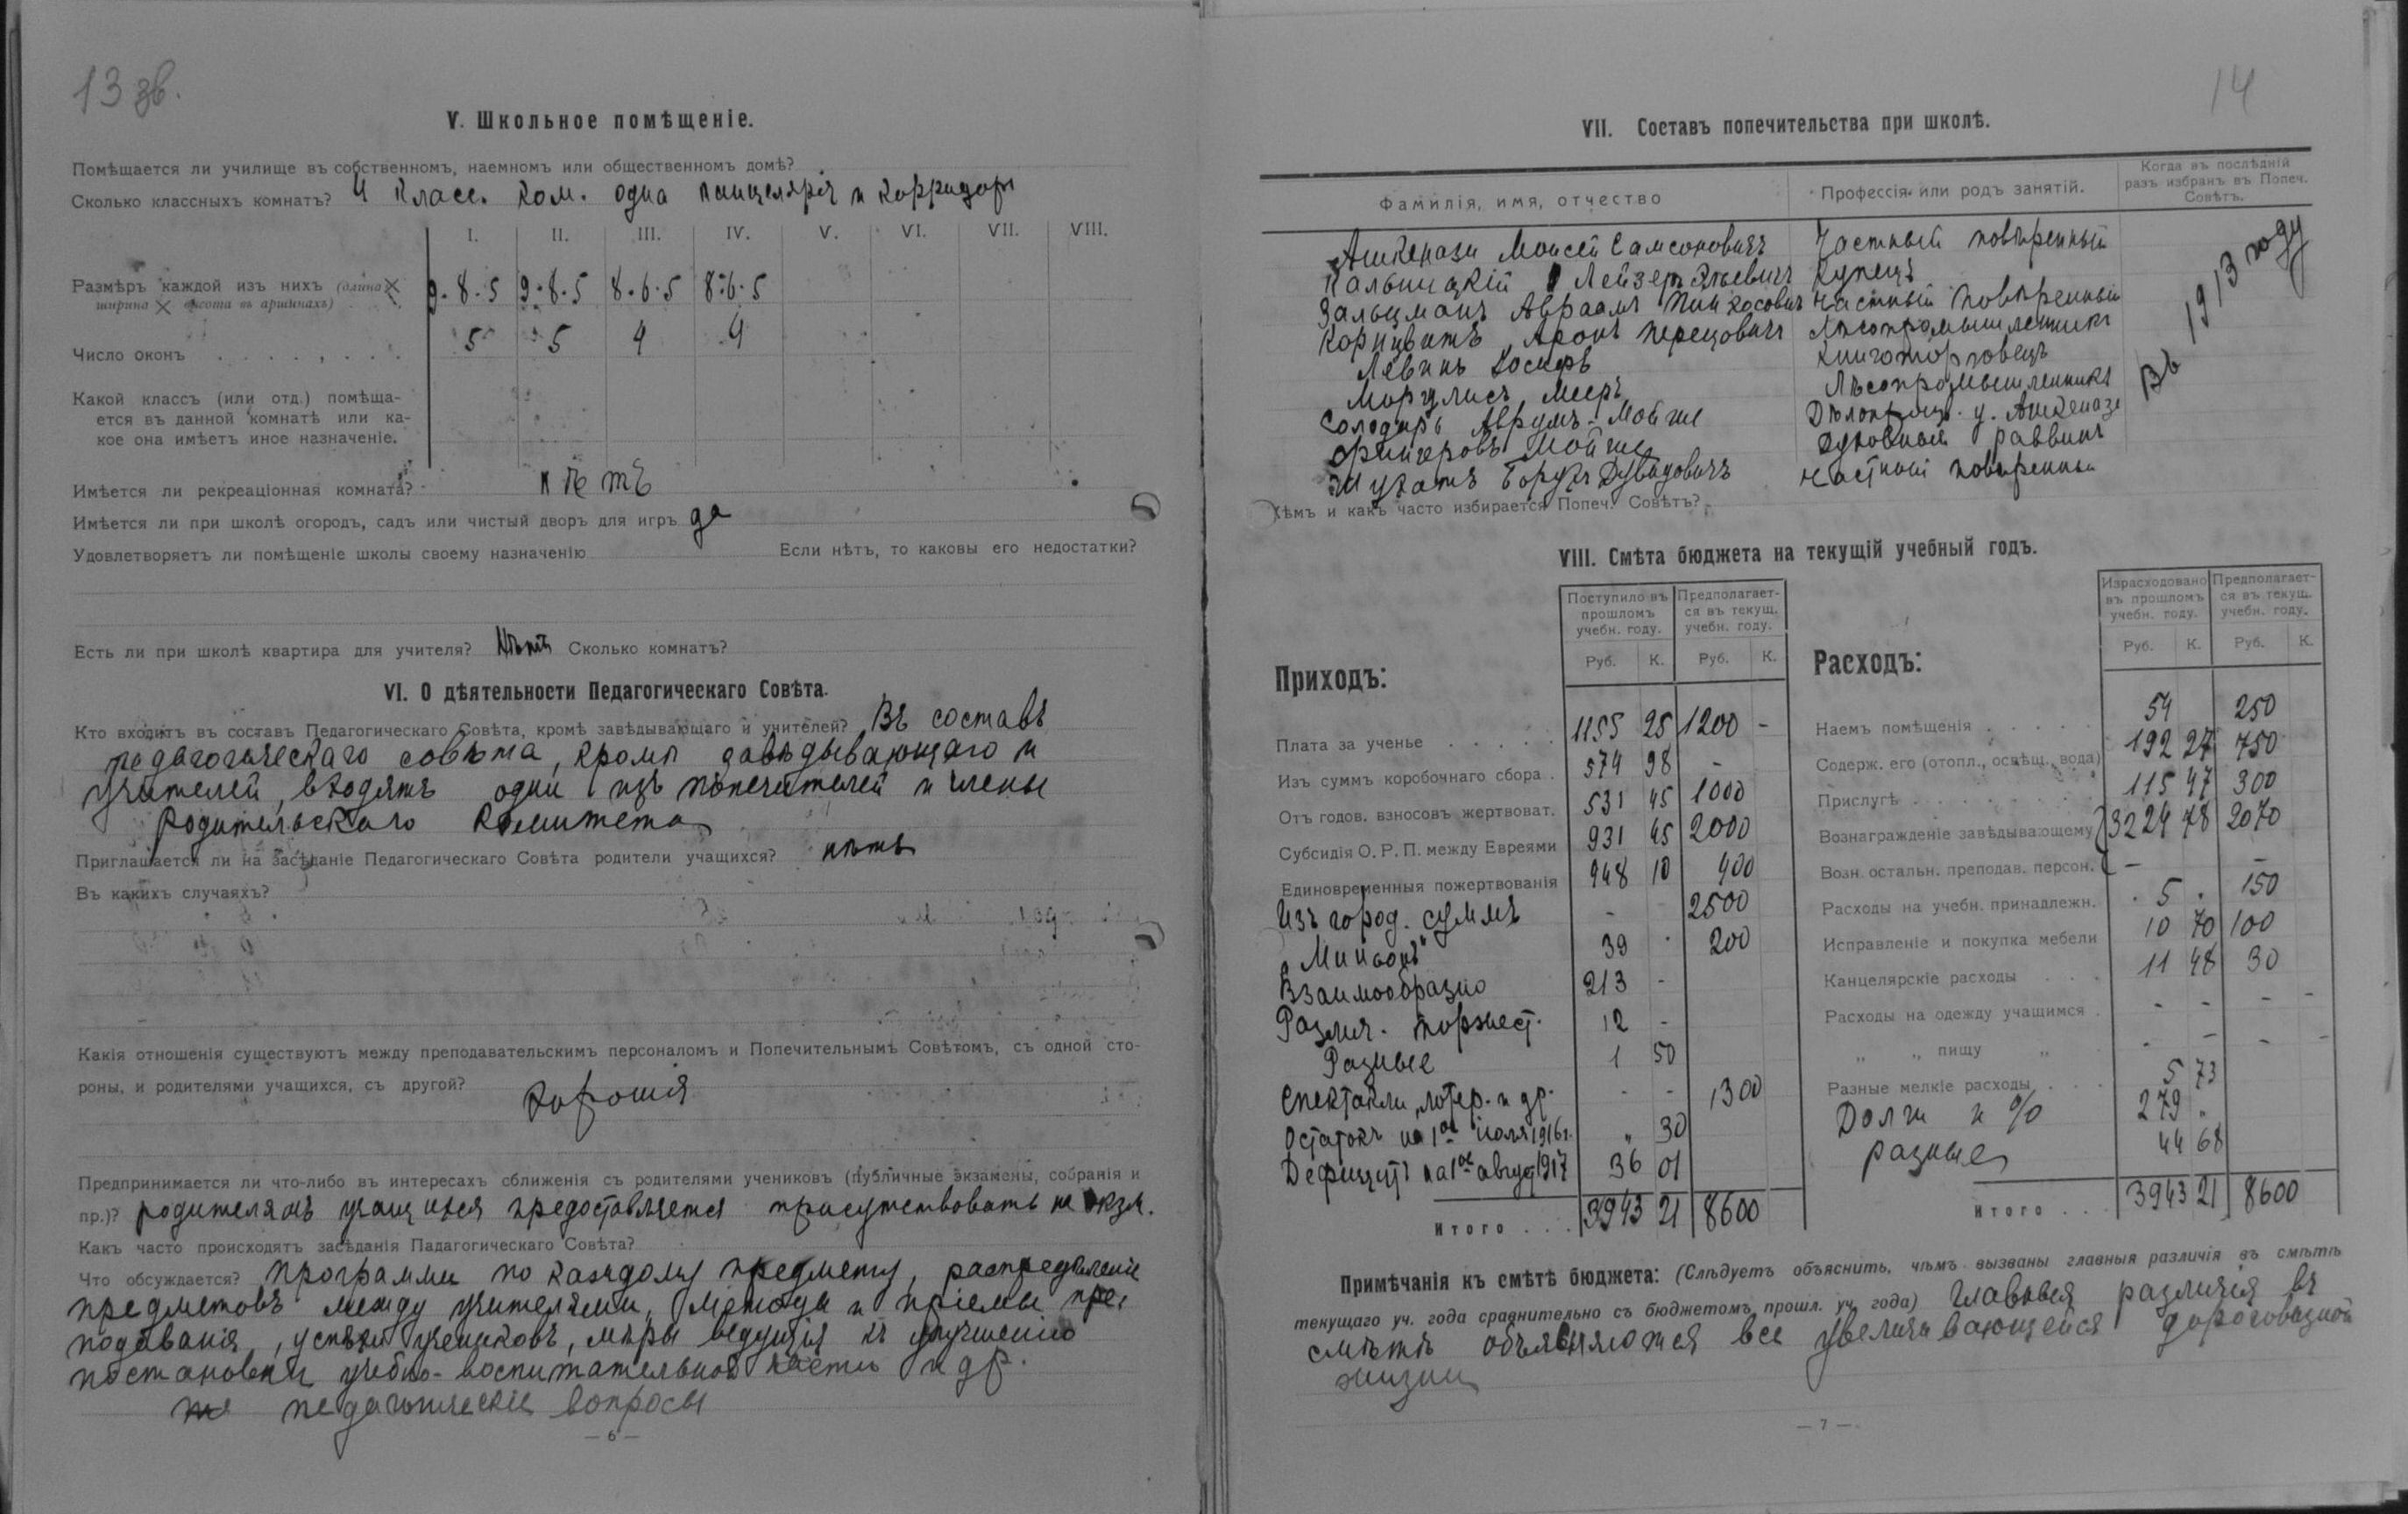 13 зв.
V. Школьное помѣщеніе.
Помѣщается ли училище въ собственномъ, наемномъ или общественномъ домѣ?
Сколько классныхъ комнатъ? 4 класс. ком. одна канцелярія и корридоръ
I. II. III. IV. V. VI. VII. VIII.
Размѣръ каждой изъ нихъ (длина × 9.8.5 9.8.5 8.6.5 8.6.5
ширина × высота въ аршинахъ)
Число оконъ 5 5 4 4
Какой классъ (или отд.) помѣща-
ется въ данной комнатѣ или ка-
кое она имѣетъ иное назначеніе.
Имѣется ли рекреаціонная комната? нѣтъ
Имѣется ли при школѣ огородъ, садъ или чистый дворъ для игръ да
Удовлетворяетъ ли помѣщеніе школы своему назначенію Если нѣтъ, то каковы его недостатки?
Есть ли при школѣ квартира для учителя? Нѣтъ Сколько комнатъ?
VI. О дѣятельности Педагогическаго Совѣта.
Кто входитъ въ составъ Педагогическаго Совѣта, кромѣ завѣдывающаго и учителей? Въ составъ
педагогическаго совѣта, кромѣ завѣдывающаго и
учителей, входятъ одни изъ попечителей и члены
родительскаго комитета
Приглашается ли на засѣданіе Педагогическаго Совѣта родители учащихся? нѣтъ
Въ какихъ случаяхъ?
Какія отношенія существуютъ между преподавательскимъ персоналомъ и Попечительнымъ Совѣтомъ, съ одной сто-
роны, и родителями учащихся, съ другой? хорошія
Предпринимается ли что-либо въ интересахъ сближенія съ родителями учениковъ (публичные экзамены, собранія и
пр.)? родителямъ учащихся предоставляется присутствовать на экзм.
Какъ часто происходятъ засѣданія Падагогическаго Совѣта?
Что обсуждается? программы по каждому предмету, распредѣленіе
предметовъ между учителями, методы и пріемы пре-
подаванія, успѣхи учениковъ, мѣры ведущія къ улучшенію
постановки учебно-воспитательной части и др.
педагогическіе вопросы
— 6 —
14
VII. Составъ попечительства при школѣ.
Фамилія, имя, отчество Профессія или родъ занятій. Когда въ послѣдній разъ избранъ въ Попеч. Совѣтъ.
Ашкенази Моисей Самсоновичъ Частный повѣренный
Кальницкій Лейзеръ Эльевичъ Купецъ
Зальцманъ Авраамъ Пинхосовичъ Частный повѣренный
Корнцвитъ Аронъ Перецовичъ Лѣсопромышленникъ
Левинъ Іосифъ Книготорговецъ
Моргулисъ Мееръ Лѣсопромышленникъ
Солодарь Аврумъ-Мойше Дѣлопроизв. у. Ашкенази
Фингеровъ Мойше Духовный раввинъ
Шухатъ Борухъ Дувидовичъ Частный повѣренный
Въ 1913 году
Кѣмъ и какъ часто избирается Попеч. Совѣтъ?
VIII. Смѣта бюджета на текущій учебный годъ.
Приходъ: Поступило въ прошломъ учебн. году. Предполагает-ся въ текущ. учебн. году.
Руб. К. Руб. К.
Плата за ученье 1155 25 1200 -
Изъ суммъ коробочнаго сбора 574 98 -
Отъ годов. взносовъ жертвоват. 531 45 1000
Субсидія О. Р. П. между Евреями 931 45 2000
Единовременныя пожертвованія 948 10 400
Изъ город. суммъ - 2500
„Миньонъ“ 39 . 200
Взаимообразно 213 -
Различ. торжест. 12 -
Разные 1 50
Спектакли, лотер. и др. - - 1300
Остатокъ на 1ое іюля 1916 г. „ 30
Дефицитъ на 1ое август 1917 36 01
Итого 3943 21 8600
Расходъ: Израсходовано въ прошломъ учебн. году. Предполагает-ся въ текущ. учебн. году.
Руб. К. Руб. К.
Наемъ помѣщенія 54 250
Содерж. его (отопл., освѣщ., вода) 192 27 750
Прислугѣ 115 47 300
Вознагражденіе завѣдывающему 3224 78 2070
Возн. остальн. преподав. персон. — —
Расходы на учебн. принадлежн. 5 . 150
Исправленіе и покупка мебели 10 70 100
Канцелярскіе расходы 11 48 30
Расходы на одежду учащимся - - - -
„ „ пищу „ - - - -
Разные мелкіе расходы 5 73
Долги и % 279 „
разные 44 68
Итого 3943 21 8600
Примѣчанія къ смѣтѣ бюджета: (Слѣдуетъ объяснить, чѣмъ вызваны главныя различія въ смѣтѣ
текущаго уч. года сравнительно съ бюджетомъ прошл. уч. года) Главныя различія въ
смѣтѣ объясняются все увеличивающейся дороговизной
жизни
— 7 —